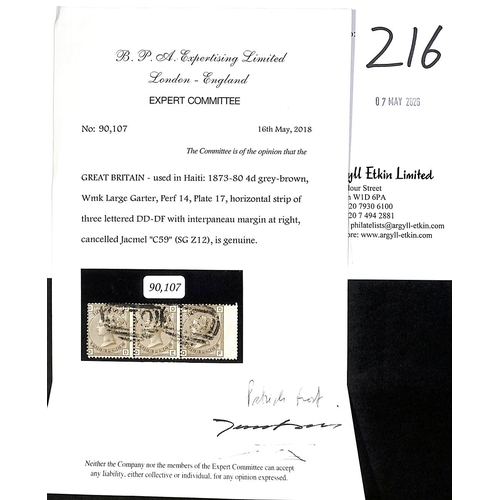 B. P. A. Expertising Limited
London - England
EXPERT COMMITTEE
No: 90,107
16th May, 2018
The Committee is of the opinion that the
GREAT BRITAIN - used in Haiti: 1873-80 4d grey-brown,
Wmk Large Garter, Perf 14, Plate 17, horizontal strip of
three lettered DD-DF with interpaneau margin at right,
cancelled Jacmel "C59" (SG Z12), is genuine.
90,107
Neither the Company nor the members of the Expert Committee can accept
any liability, either collective or individual, for any opinion expressed.
216
07 MAY 2020
yll Etkin Limited
dour Street
n W1D 6PA
20 7930 6100
20 7 494 2881
philatelists@argyll-etkin.com
re: www.argyll-etkin.com